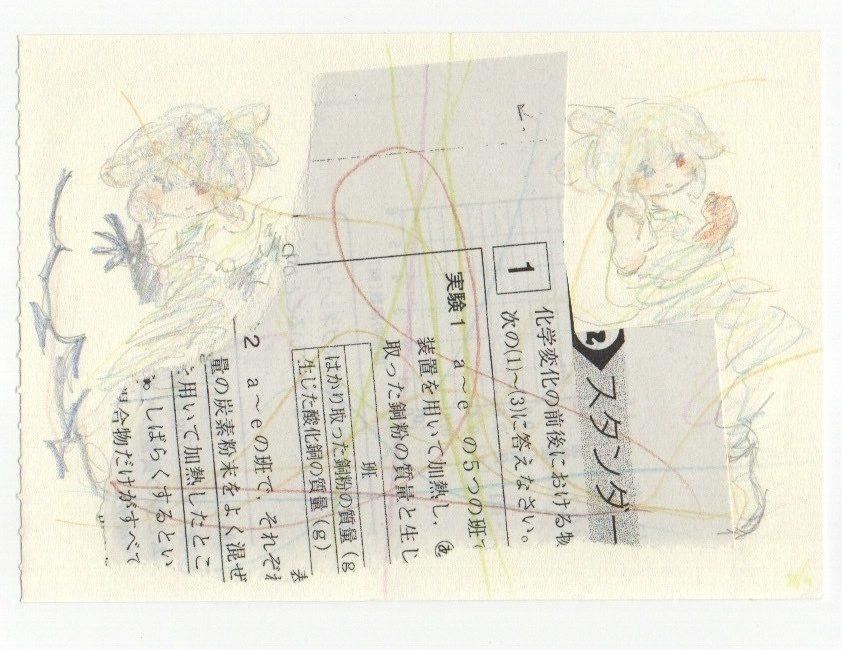 スタンダー
1
化学変化の前後における物
次の(1)~(3)に答えなさい。
実験1 a~e の5つの班で
装置を用いて加熱し,あ
取った銅粉の質量と生じ
班
はかり取った銅粉の質量(g
生じた酸化銅の質量(g)
表
2 a~eの班で,それぞれ
量の炭素粉末をよく混ぜ
用いて加熱したとこ
しばらくするとい
合物だけがすべて